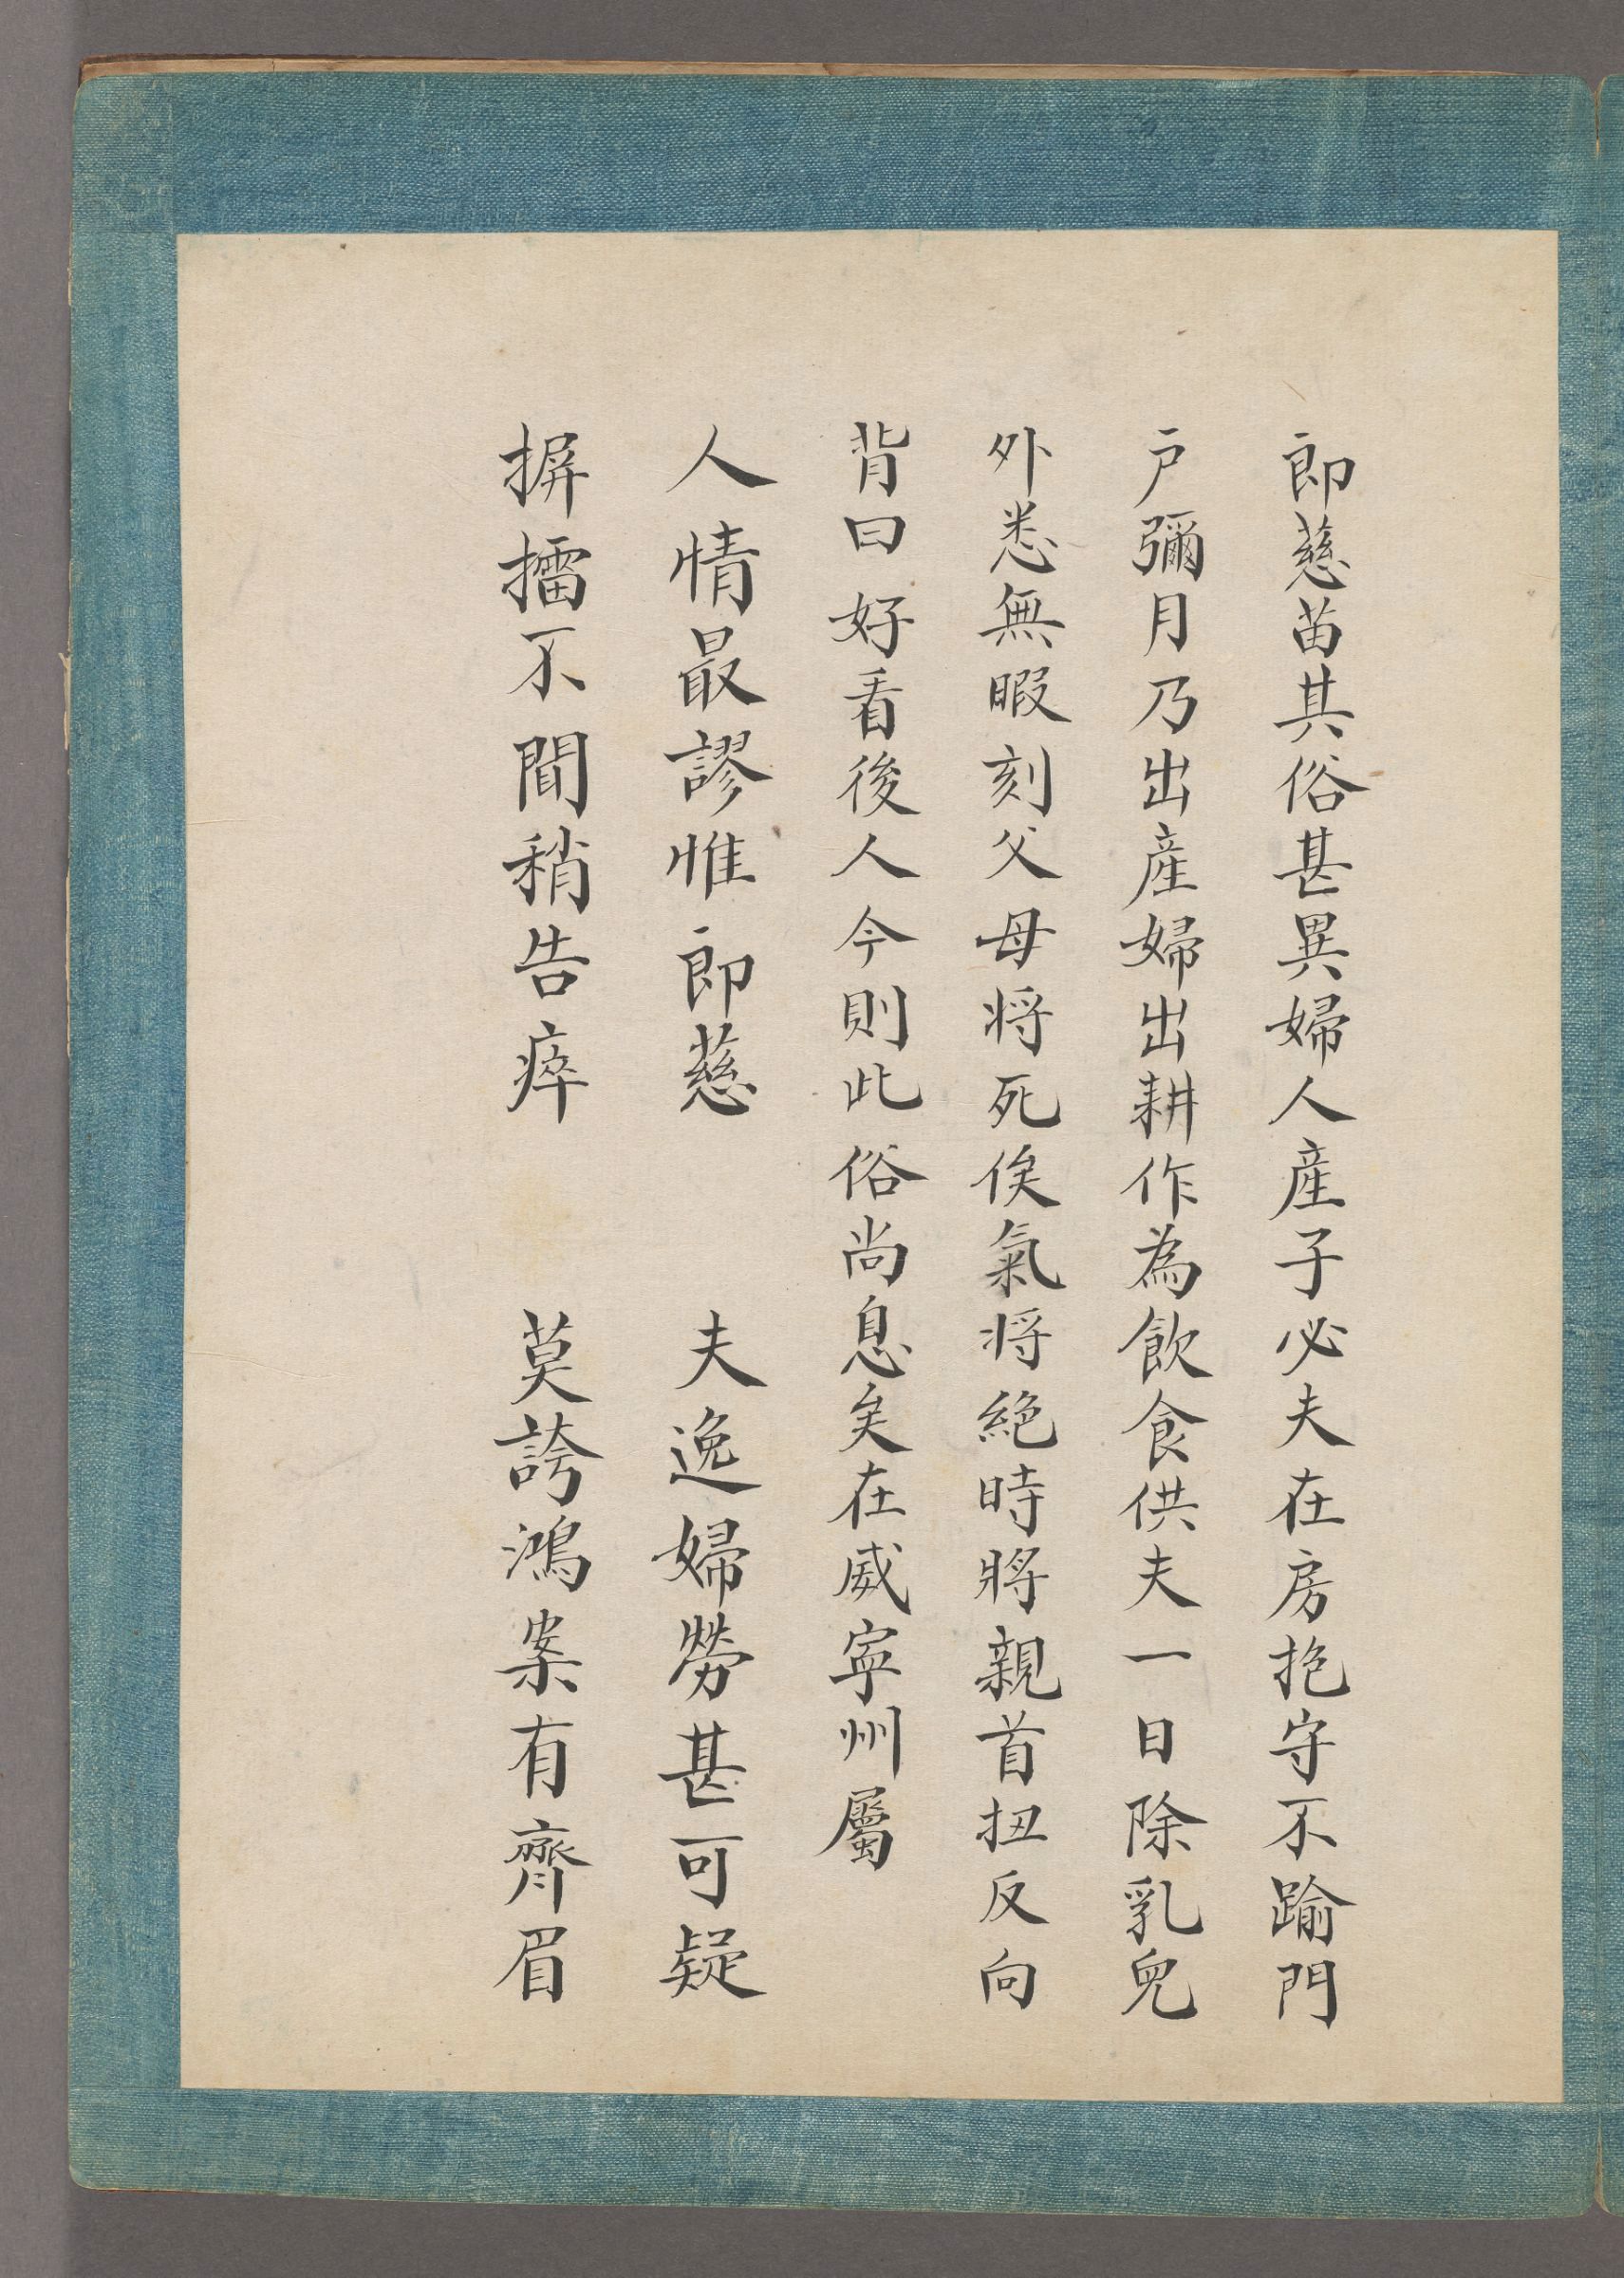 郎慈苗其俗甚異婦人産子必夫在房抱守不踰門
户彌月乃出産婦出耕作為飲食供夫一日除乳兒
外悉無暇刻父母将死俟氣将絶時將親首扭反向
背曰好看後人今則此俗尚息矣在威寧州屬
人情最謬惟郎慈 夫逸婦勞甚可疑
摒擋不閒稍告瘁 莫誇鴻案有齊眉